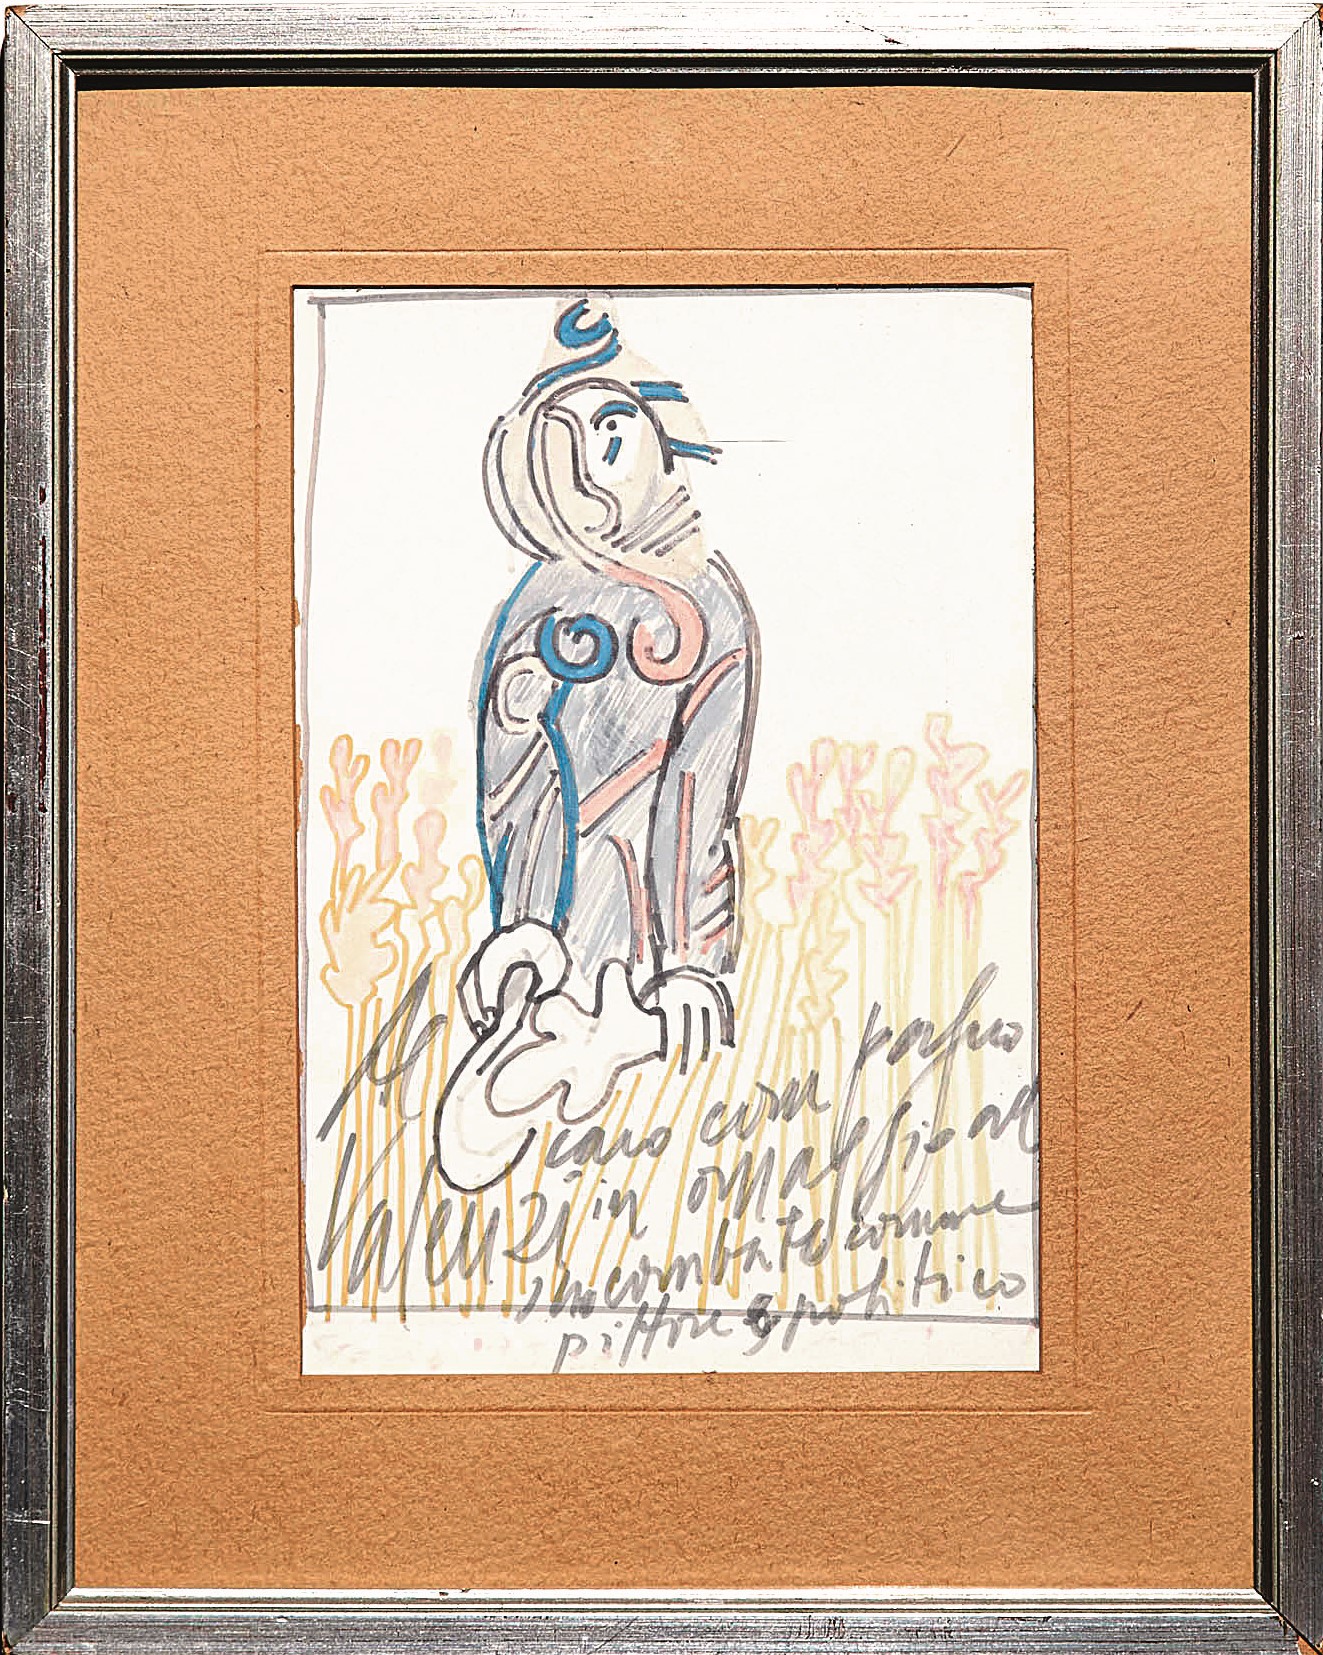 Al caro compagno
Valenzi in omaggio al
suo combatto comune
pittore e politico